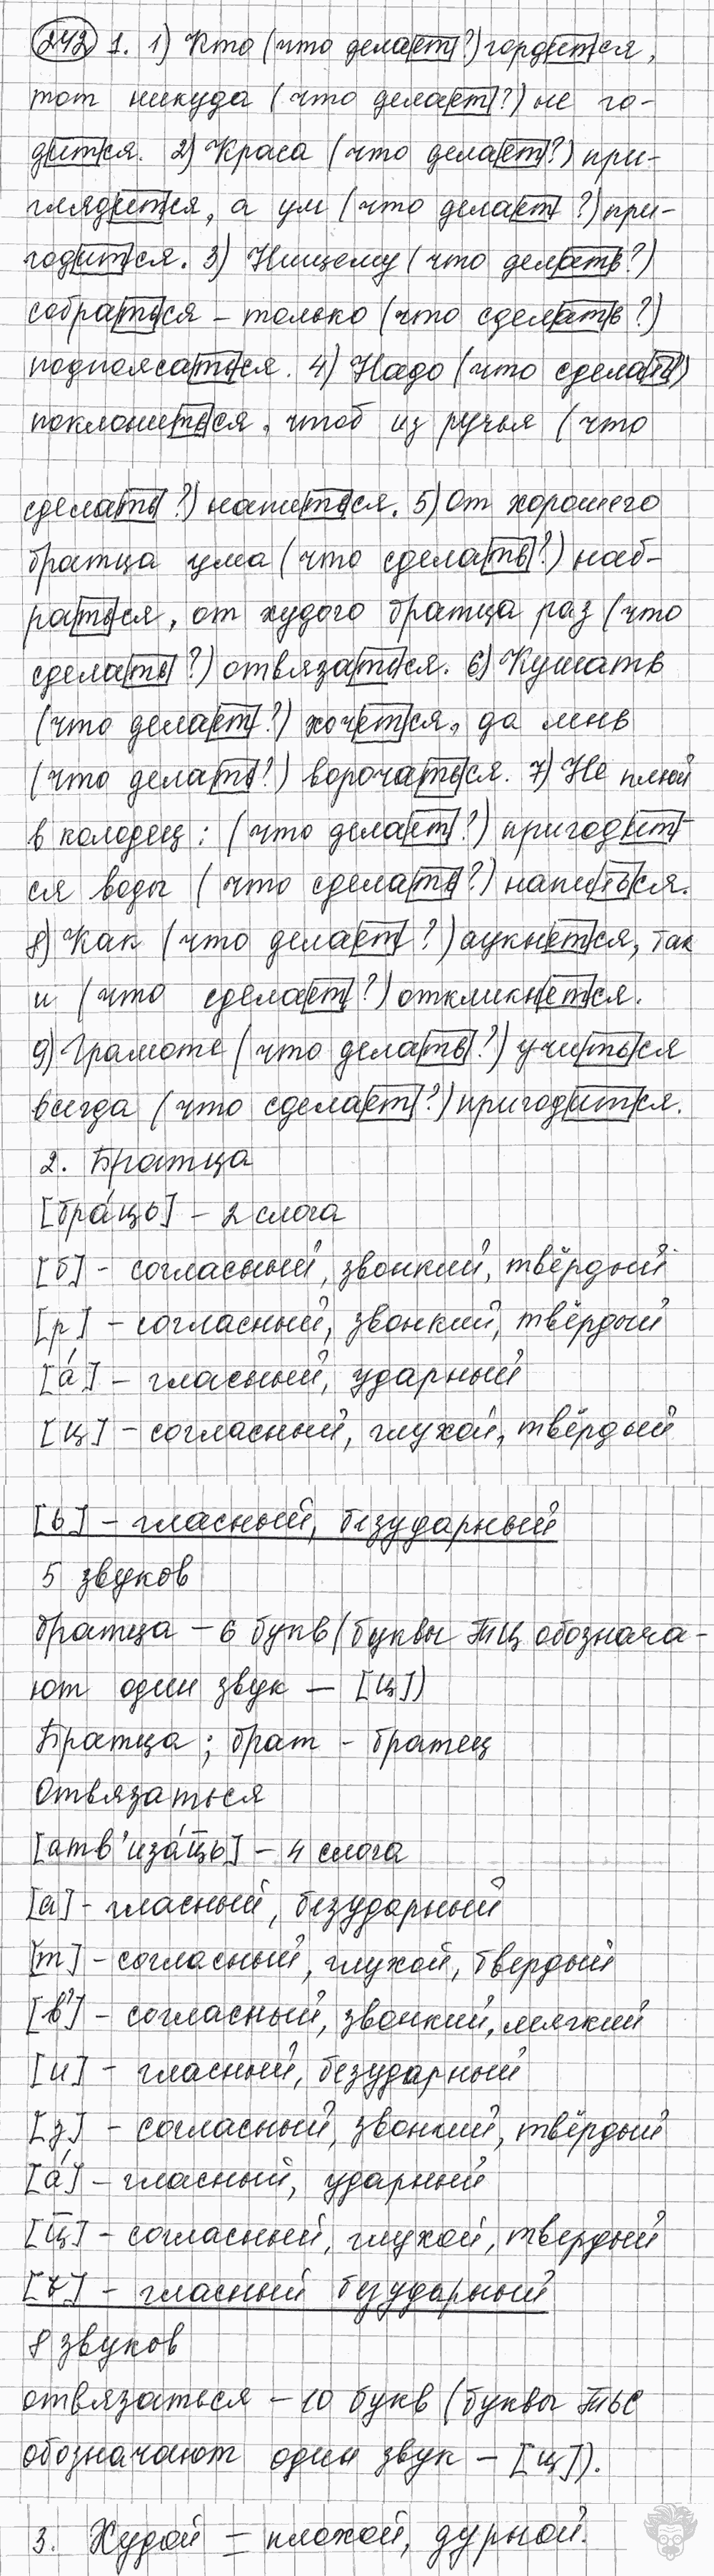 242 1. 1) Кто (что делает?) гордится,
тот никуда (что делает?) не го-
дится. 2) Краса (что делает?) при-
глядится, а ум (что делает?) при-
годится. 3) Нищему (что делать?)
собраться – только (что сделать?)
подпоясаться. 4) Надо (что сделать)
поклониться, чтоб из ручья (что
сделать?) напиться. 5) От хорошего
братца ума (что сделать?) наб-
раться, от худого братца раз (что
сделать?) отвязаться. 6) Кушать
(что делает?) хочется, да лень
(что делать?) ворочаться. 7) Не плюй
в колодец: (что делает?) пригодит-
ся воды (что сделать?) напиться.
8) Как (что делает?) аукнется, так
и (что сделает?) откликнется.
9) Грамоте (что делать?) учиться
всегда (что сделает?) пригодится.
2. Братца
[бра́цъ] – 2 слога
[б] – согласный, звонкий, твёрдый
[р] – согласный, звонкий, твёрдый
[а́] – гласный, ударный
[ц] – согласный, глухой, твёрдый
[ъ] – гласный, безударный
5 звуков
братца – 6 букв (буквы ТЦ обознача-
ют один звук – [ц])
Братца; брат – братец
Отвязаться
[атв'иза́ц̄ъ] – 4 слога
[а] – гласный, безударный
[т] – согласный, глухой, твердый
[в'] – согласный, звонкий, мягкий
[и] – гласный, безударный
[з] – согласный, звонкий, твёрдый
[а́] – гласный, ударный
[ц̄] – согласный, глухой, твердый
[ъ] – гласный безударный
8 звуков
отвязаться – 10 букв (буквы ТЬС
обозначают один звук – [ц]).
3. Худой – плохой, дурной.